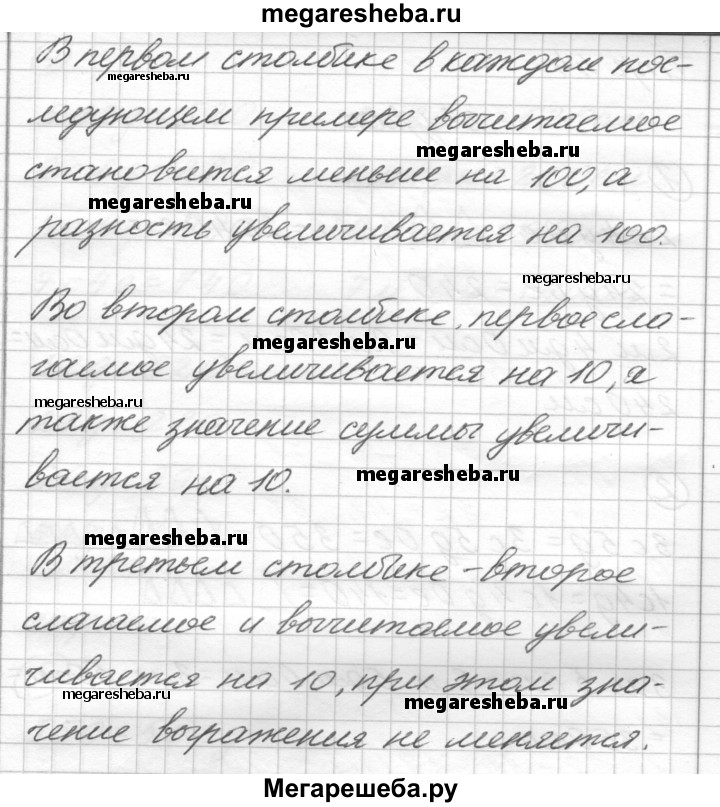 megaresheba.ru
В первом столбике в каждом пос-
megaresheba.ru
ледующем примере вычитаемое
megaresheba.ru
становится меньше на 100, а
megaresheba.ru
разность увеличивается на 100.
megaresheba.ru
Во втором столбике, первое сла-
megaresheba.ru
гаемое увеличивается на 10, а
megaresheba.ru
также значение суммы увеличи-
вается на 10.
megaresheba.ru
megaresheba.ru
В третьем столбике - второе
слагаемое и вычитаемое увели-
чивается на 10, при этом зна-
megaresheba.ru
megaresheba.ru
чение выражения не меняется.
Мегарешеба.ру